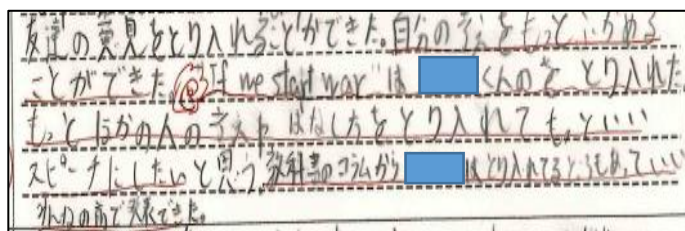 友達の意見をとり入れることができた。自分の考えをもっとふかめる
ことができた。"If we start war"は くんのを とり入れた。
もっとほかの人の考えや はなし方をとり入れて もっといい
スピーチにしたいと思う。教科書のコラムから はとり入れてるところもあっていい
みんなの前で発表できた。